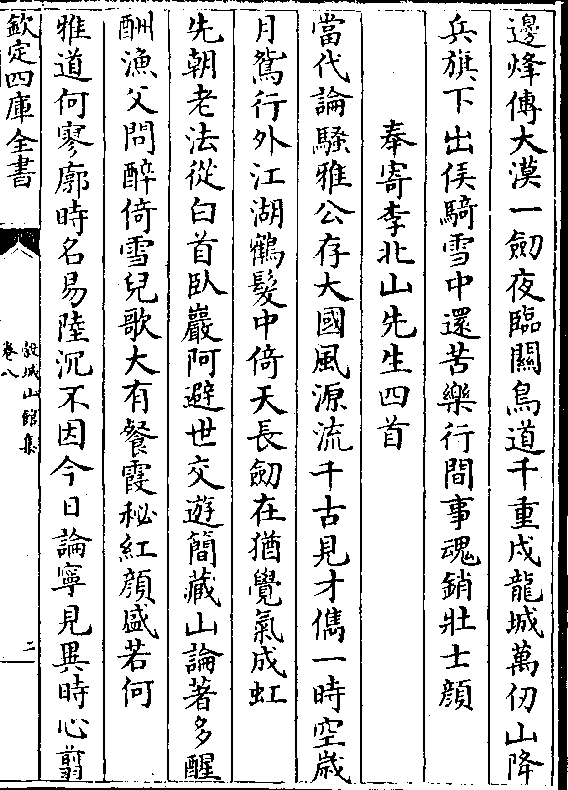 邊烽傳大漠一劒夜臨關鳥道千重戍龍城萬仞山降
兵旗下出候騎雪中還苦樂行間事魂銷壯士顔
奉寄李北山先生四首
當代論騷雅公存大國風源流千古見才儁一時空歳
月鴛行外江湖鶴髮中倚天長劒在猶覺氣成虹
先朝老法從白首臥巖阿避世交遊簡藏山論著多醒
酬漁父問醉倚雪兒歌大有餐霞秘紅顔盛若何
雅道何寥廓時名易陸沉不因今日論寧見異時心翦
欽定四庫全書
穀城山館集
卷八
二